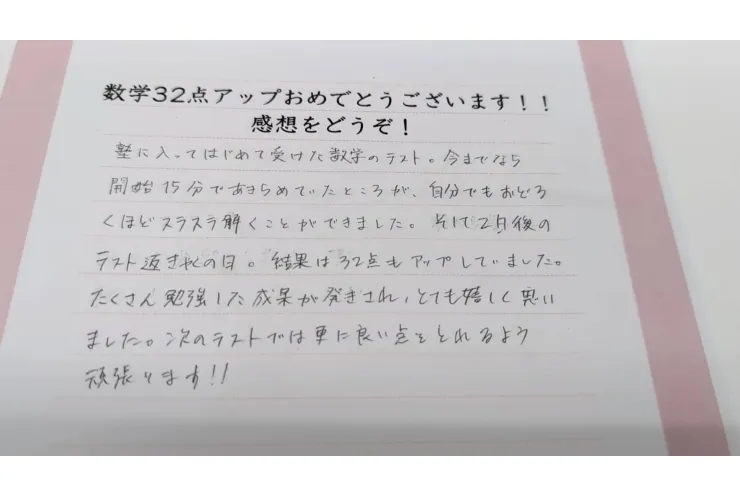 数学32点アップおめでとうございます！！
感想をどうぞ！
塾に入ってはじめて受けた数学のテスト。今までなら
開始15分であきらめていたところが、自分でもおどろ
くほどスラスラ解くことができました。そして2日後の
テスト返きゃくの日。結果は32点もアップしていました。
たくさん勉強した成果が発きされ、とても嬉しく思い
ました。次のテストでは更に良い点をとれるよう
頑張ります!!